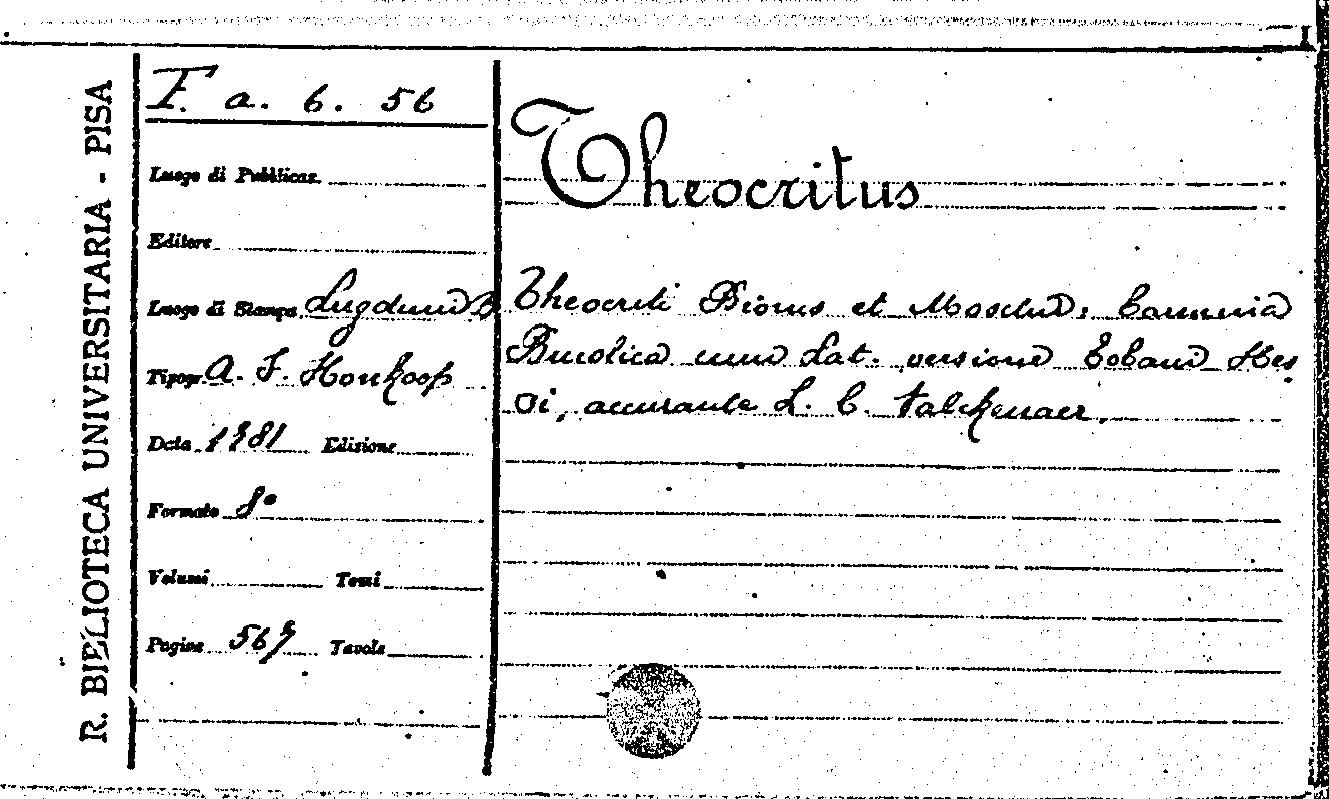 R. BIBLIOTECA UNIVERSITARIA - PISA
F. a. 6. 56
Luogo di Pubblicaz.
Editore
Luogo di Stampa Lugduni B
Tipogr. A. J. Honkoop
Data 1781 Edizione
Formato 8°
Volumi Tomi
Pagine 567 Tavole
Theocritus
Theocriti Bionis et Moschi, Carmina
Bucolica cum Lat. versione Eobani Hes
si, accurante L. C. Valckenaer.